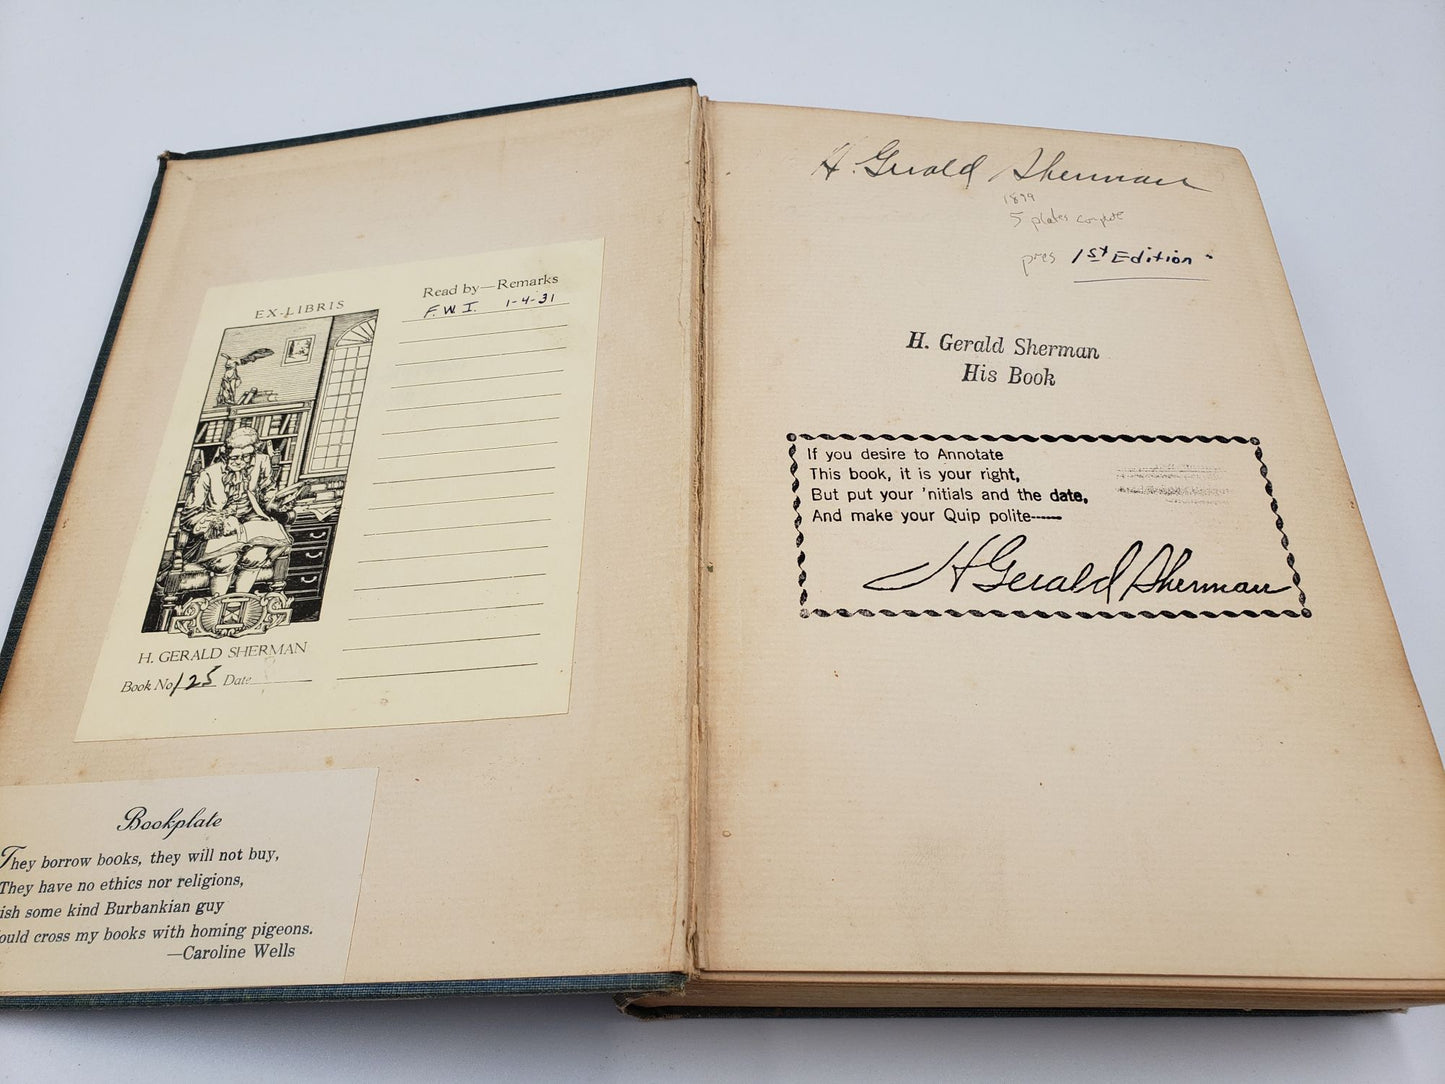 EX-LIBRIS
Read by—Remarks
F.W.I. 1-4-31
H. GERALD SHERMAN
Book No 125 Date
Bookplate
They borrow books, they will not buy,
They have no ethics nor religions,
ish some kind Burbankian guy
ould cross my books with homing pigeons.
—Caroline Wells
H. Gerald Sherman
1899
5 plates complete
pres 1st Edition.
H. Gerald Sherman
His Book
If you desire to Annotate
This book, it is your right,
But put your 'nitials and the date,
And make your Quip polite——
H Gerald Sherman